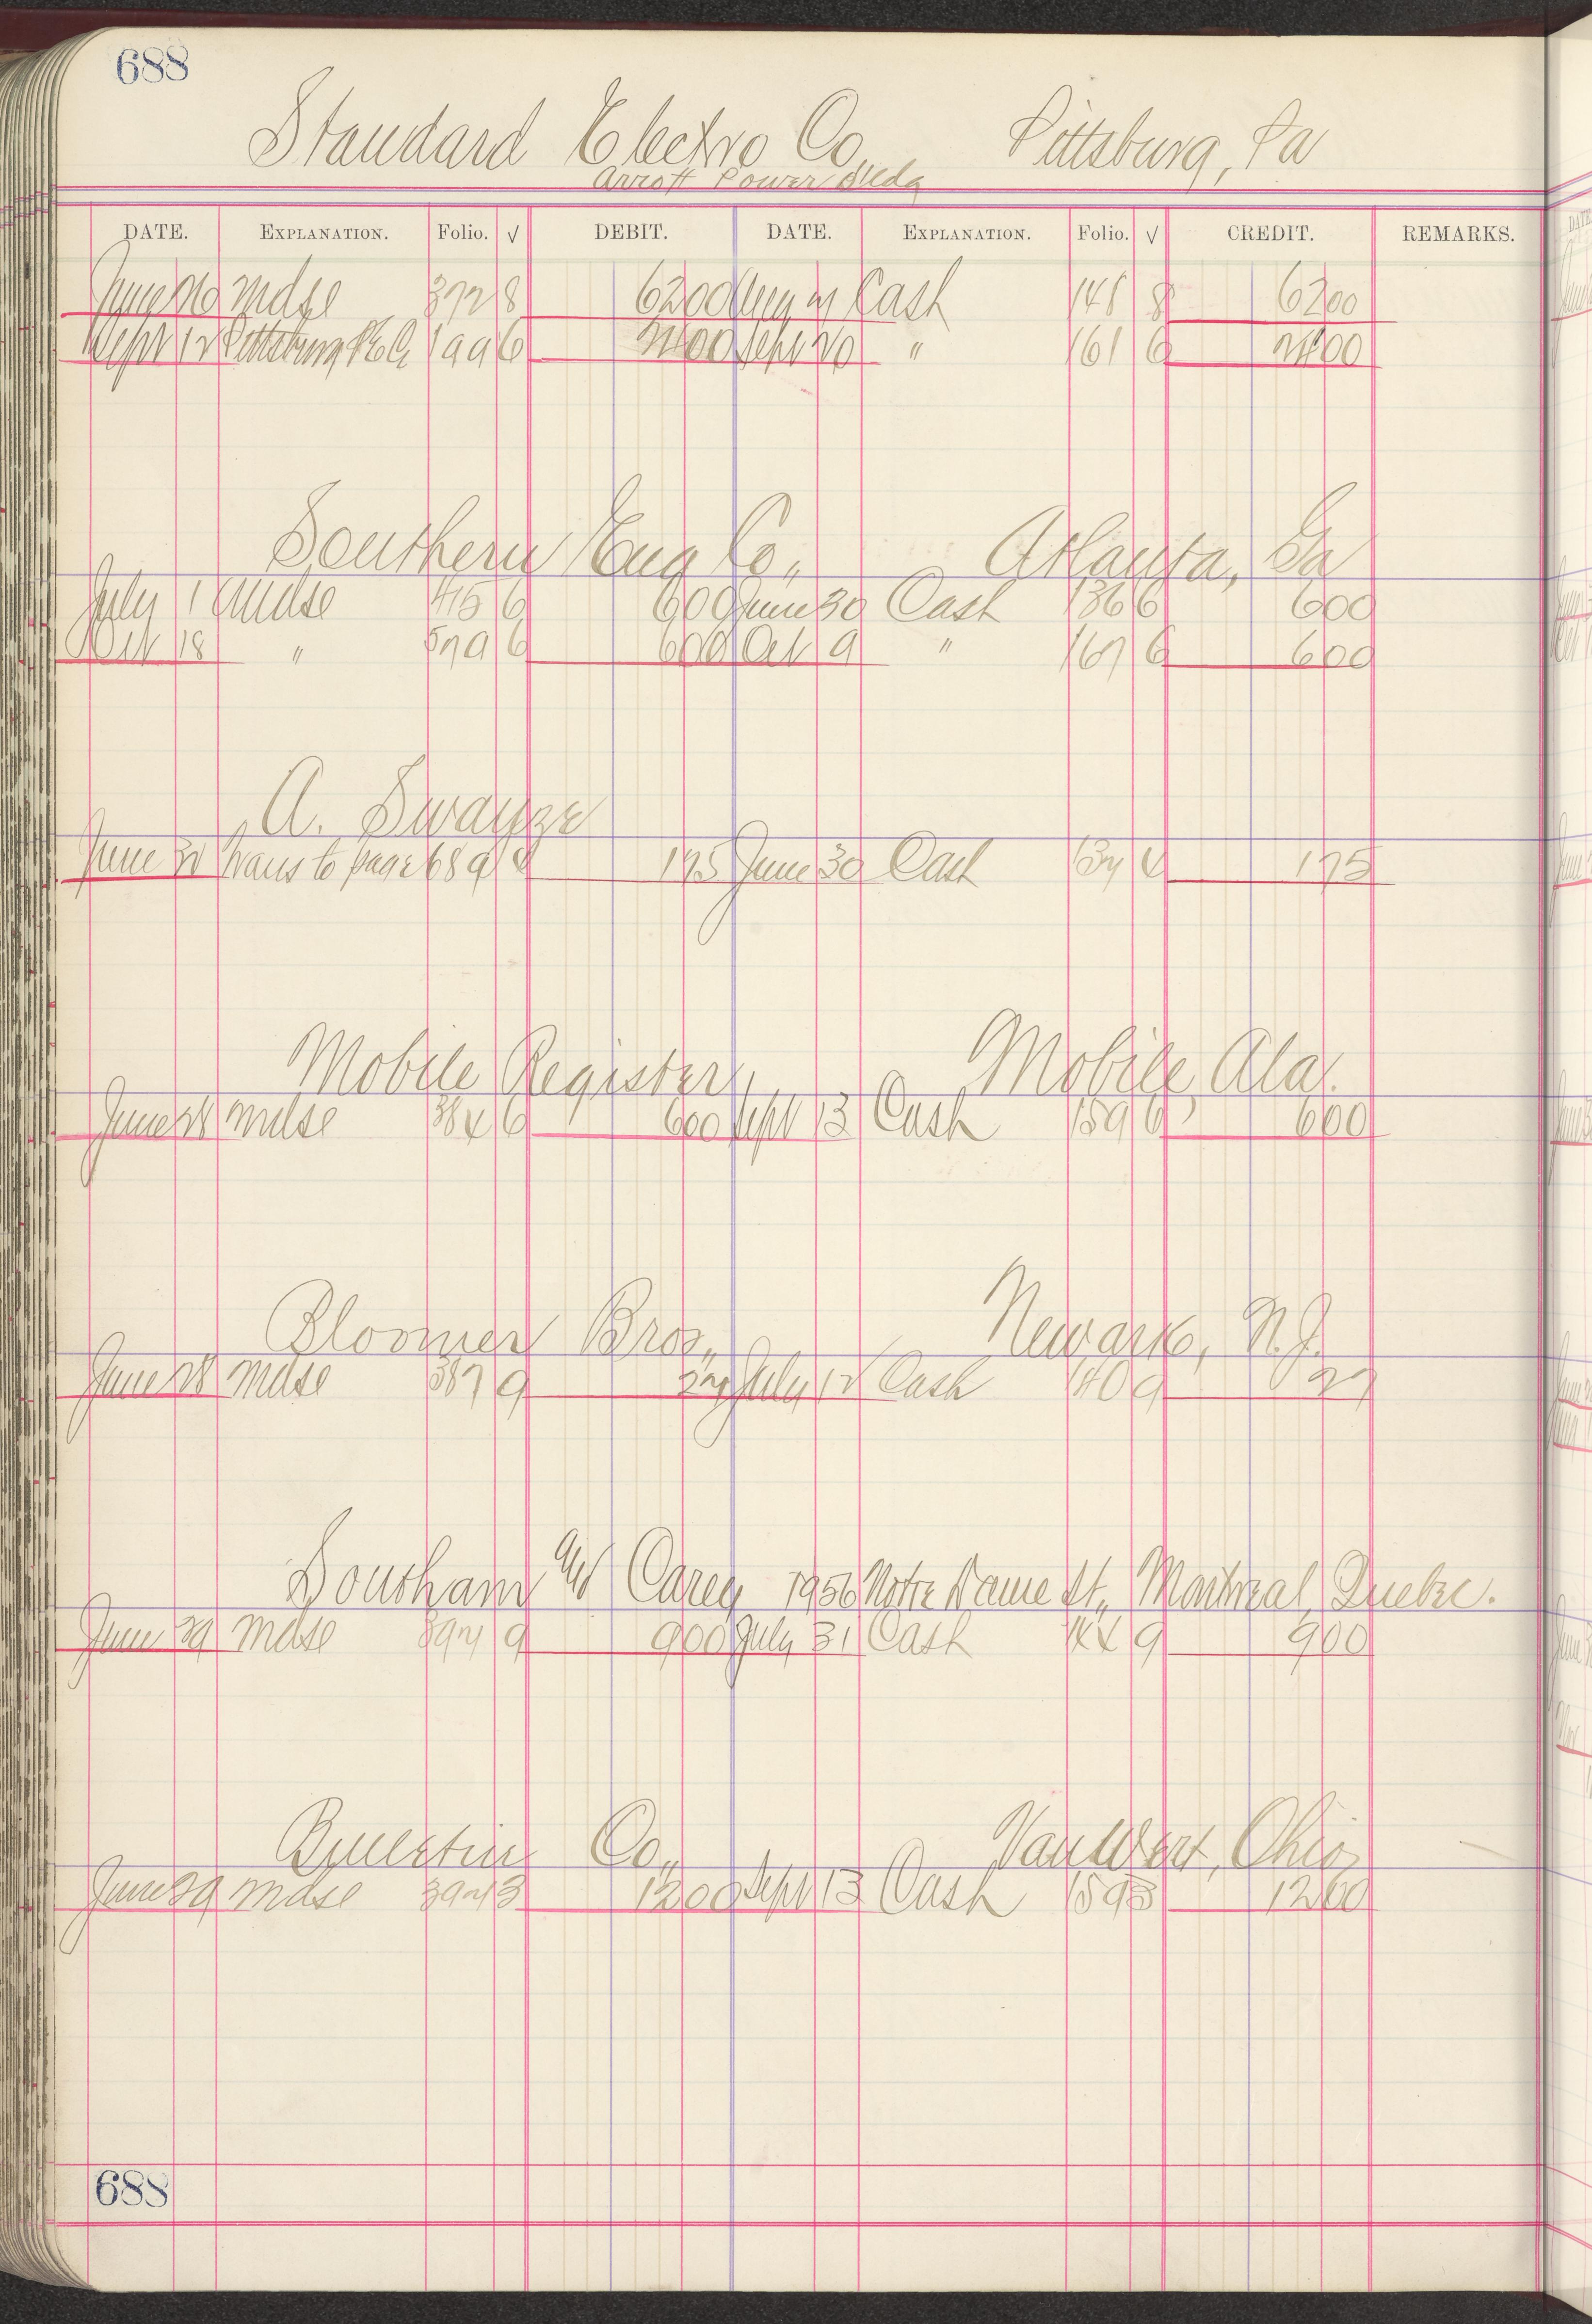 688
Standard Electro Co., Pittsburg, Pa
Arrott Power Bldg
DATE. EXPLANATION. Folio. √ DEBIT. DATE. EXPLANATION. Folio. √ CREDIT. REMARKS.
June 26 Mdse 372 8 6200 Aug Cash 148 8 6200
Sept 12 Pittsburg 199 6 2400 Sept 20 " 161 6 2400
Southern Eng Co., Atlanta, Ga
July 1 Mdse 415 6 600 June 30 Cash 136 6 600
Oct 18 " 579 6 600 Oct 9 " 167 6 600
A. Swayze
June Trans to page 689 175 June 30 Cash 175
Mobile Register, Mobile, Ala.
June 28 Mdse 384 6 600 Sept 13 Cash 159 6 600
Bloomer Bros., Newark, N.J.
June 28 Mdse 387 9 27 July 12 Cash 140 9 27
Southam and Carey 1956 Notre Dame St., Montreal, Quebec.
June 29 Mdse 392 9 900 July 31 Cash 144 9 900
Bulletin Co., Van Wert, Ohio,
June 29 Mdse 392 3 1200 Sept 13 Cash 159 3 1200
688